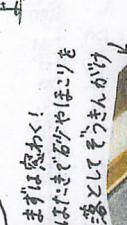 まずは窓わく!
はたきで砂やほこりを
落としてぞうきんがけ